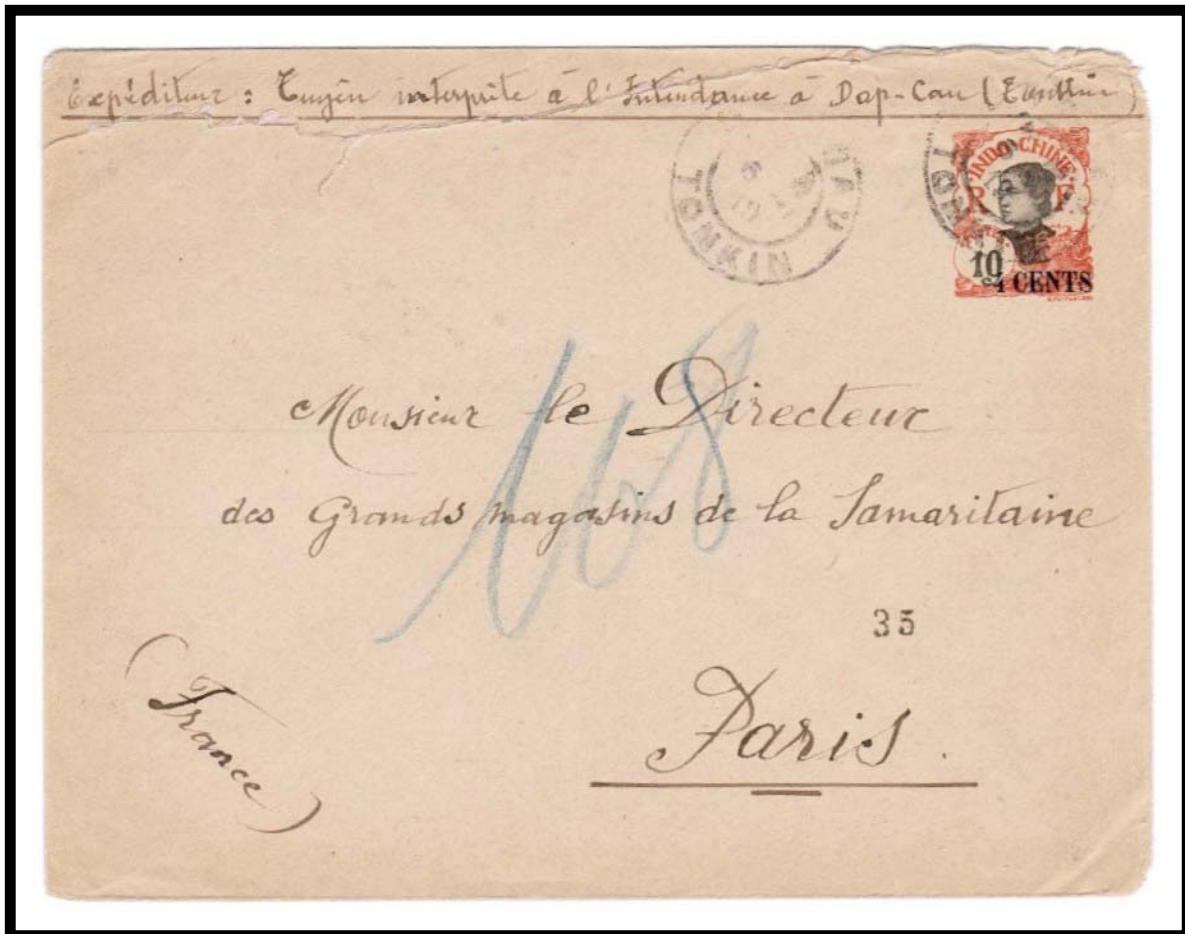 Expéditeur : Tuyên interprète à l'Intendance à Dap-Cau (Tonkin)
TONKIN
TONKIN
INDO-CHINE
R F
10
4 CENTS
Monsieur le Directeur
des Grands magasins de la Samaritaine
168
35
Paris.
(France)